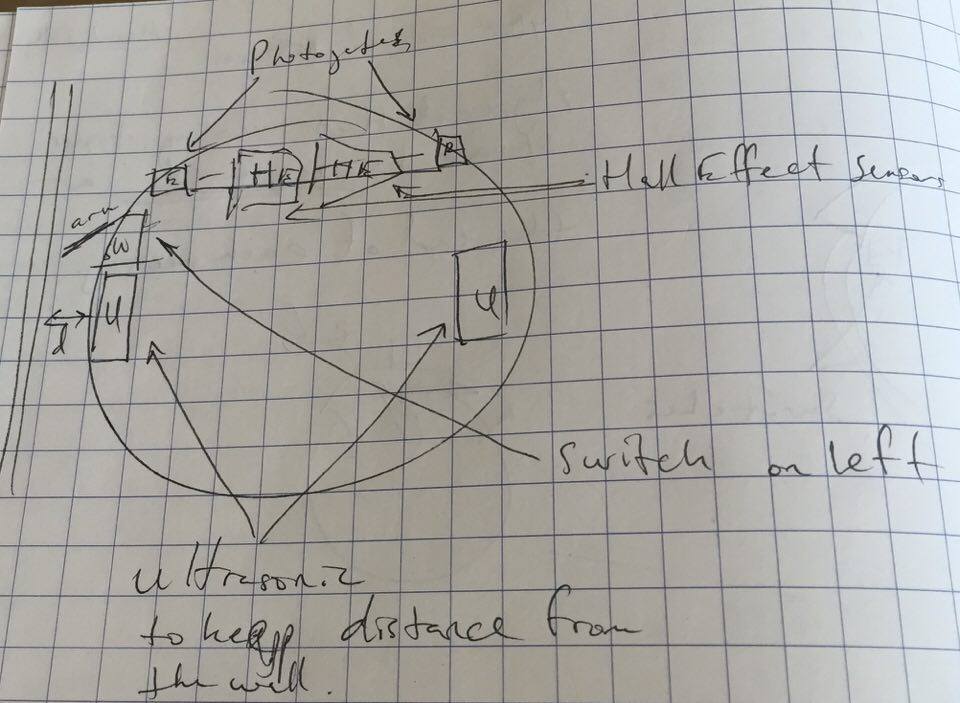 Photogates
R
HE HE
Hall Effect Sensors
arm
SW
U
U
d
Switch on left
Ultrasonic
to keep distance from
the wall.